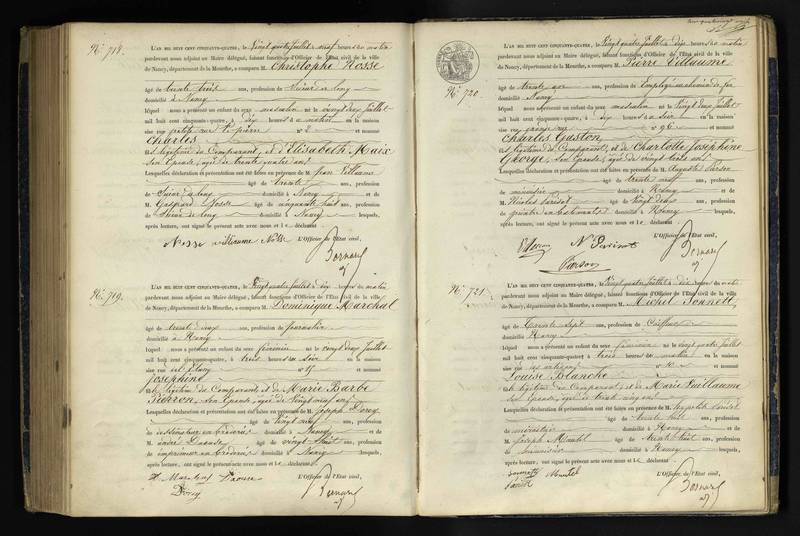 N.º 718.
L'AN MIL HUIT CENT CINQUANTE-QUATRE, le Vingt quatre juillet neuf heures du matin
pardevant nous adjoint au Maire délégué, faisant fonctions d'Officier de l'État civil de la ville
de Nancy, département de la Meurthe, a comparu M. Christophe Nosse
âgé de trente trois ans, profession de Scieur de long
domicilié à Nancy
lequel nous a présenté un enfant du sexe masculin né le vingt deux juillet
mil huit cent cinquante-quatre, à dix heures du matin en la maison
sise rue petite rue St pierre n° 2 et nommé
Charles
et de Elisabeth Maix
Son Epouse, âgée de trente quatre ans
Lesquelles déclaration et présentation ont été faites en présence de M. Jean Villaume
âgé de trente ans, profession
de Scieur de long domicilié à Nancy et de
M. Gaspard Nosse âgé de cinquante huit ans, profession
de Scieur de long domicilié à Nancy lesquels,
après lecture, ont signé le présent acte avec nous et le déclarant
Nosse villiaume Nosse L'Officier de l'État civil,
Bernard
N.º 719.
L'AN MIL HUIT CENT CINQUANTE-QUATRE, le Vingt quatre juillet à dix heures du matin
pardevant nous adjoint au Maire délégué, faisant fonctions d'Officier de l'État civil de la ville
de Nancy, département de la Meurthe, a comparu M. Dominique Marchal
âgé de trente deux ans, profession de
domicilié à Nancy
lequel nous a présenté un enfant du sexe féminin né le vingt deux juillet
mil huit cent cinquante-quatre, à trois heures du soir en la maison
sise rue n° 15 et nommé
Joséphine
fille légitime du Comparant et de Marie Barbe
Pierron, son Epouse, âgée de vingt neuf ans
Lesquelles déclaration et présentation ont été faites en présence de M. Joseph Dorcy
âgé de vingt neuf ans, profession
de dessinateur en broderies domicilié à Nancy et de
M. André âgé de vingt huit ans, profession
de imprimeur en broderies domicilié à Nancy lesquels,
après lecture, ont signé le présent acte avec nous et le déclarant
L'Officier de l'État civil,
Dorcy Bernard
N.º 720
L'AN MIL HUIT CENT CINQUANTE-QUATRE, le Vingt quatre juillet à dix heures du matin
pardevant nous adjoint au Maire délégué, faisant fonctions d'Officier de l'État civil de la ville
de Nancy, département de la Meurthe, a comparu M. Pierre Villaume
âgé de trente ans, profession de Employé au chemin de fer
domicilié à Nancy
lequel nous a présenté un enfant du sexe masculin né le vingt deux juillet
mil huit cent cinquante-quatre, à dix heures du soir en la maison
sise rue grande rue n° 96 et nommé
Charles Gaston
fils légitime du Comparant, et de Charlotte Joséphine
George, son Epouse, âgée de vingt trois ans
Lesquelles déclaration et présentation ont été faites en présence de M. Auguste Pierson
âgé de trente neuf ans, profession
de menuisier domicilié à Nancy et de
M. Nicolas Parisot âgé de vingt deux ans, profession
de peintre en batiments domicilié à Nancy lesquels,
après lecture, ont signé le présent acte avec nous et le déclarant
N Parisot L'Officier de l'État civil,
Pierson Bernard
N.º 721.
L'AN MIL HUIT CENT CINQUANTE-QUATRE, le Vingt quatre juillet à dix heures du matin
pardevant nous adjoint au Maire délégué, faisant fonctions d'Officier de l'État civil de la ville
de Nancy, département de la Meurthe, a comparu M. Michel Sonnett
âgé de trente sept ans, profession de Coiffeur
domicilié à Nancy
lequel nous a présenté un enfant du sexe féminin né le vingt quatre juillet
mil huit cent cinquante-quatre, à trois heures du matin en la maison
sise rue des artisans n° et nommé
Louise Blanche
fille légitime du Comparant, et de Marie Guillaume
son Epouse, âgée de trente cinq ans
Lesquelles déclaration et présentation ont été faites en présence de M. hypolite
âgé de trente huit ans, profession
de menuisier domicilié à Nancy et de
M. Joseph Mantel âgé de trente huit ans, profession
de menuisier domicilié à Nancy lesquels,
après lecture, ont signé le présent acte avec nous et le déclarant
Mantel L'Officier de l'État civil,
Bernard